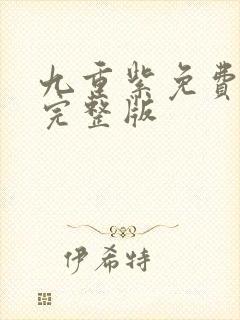 九重紫免費
完整版
伊希特